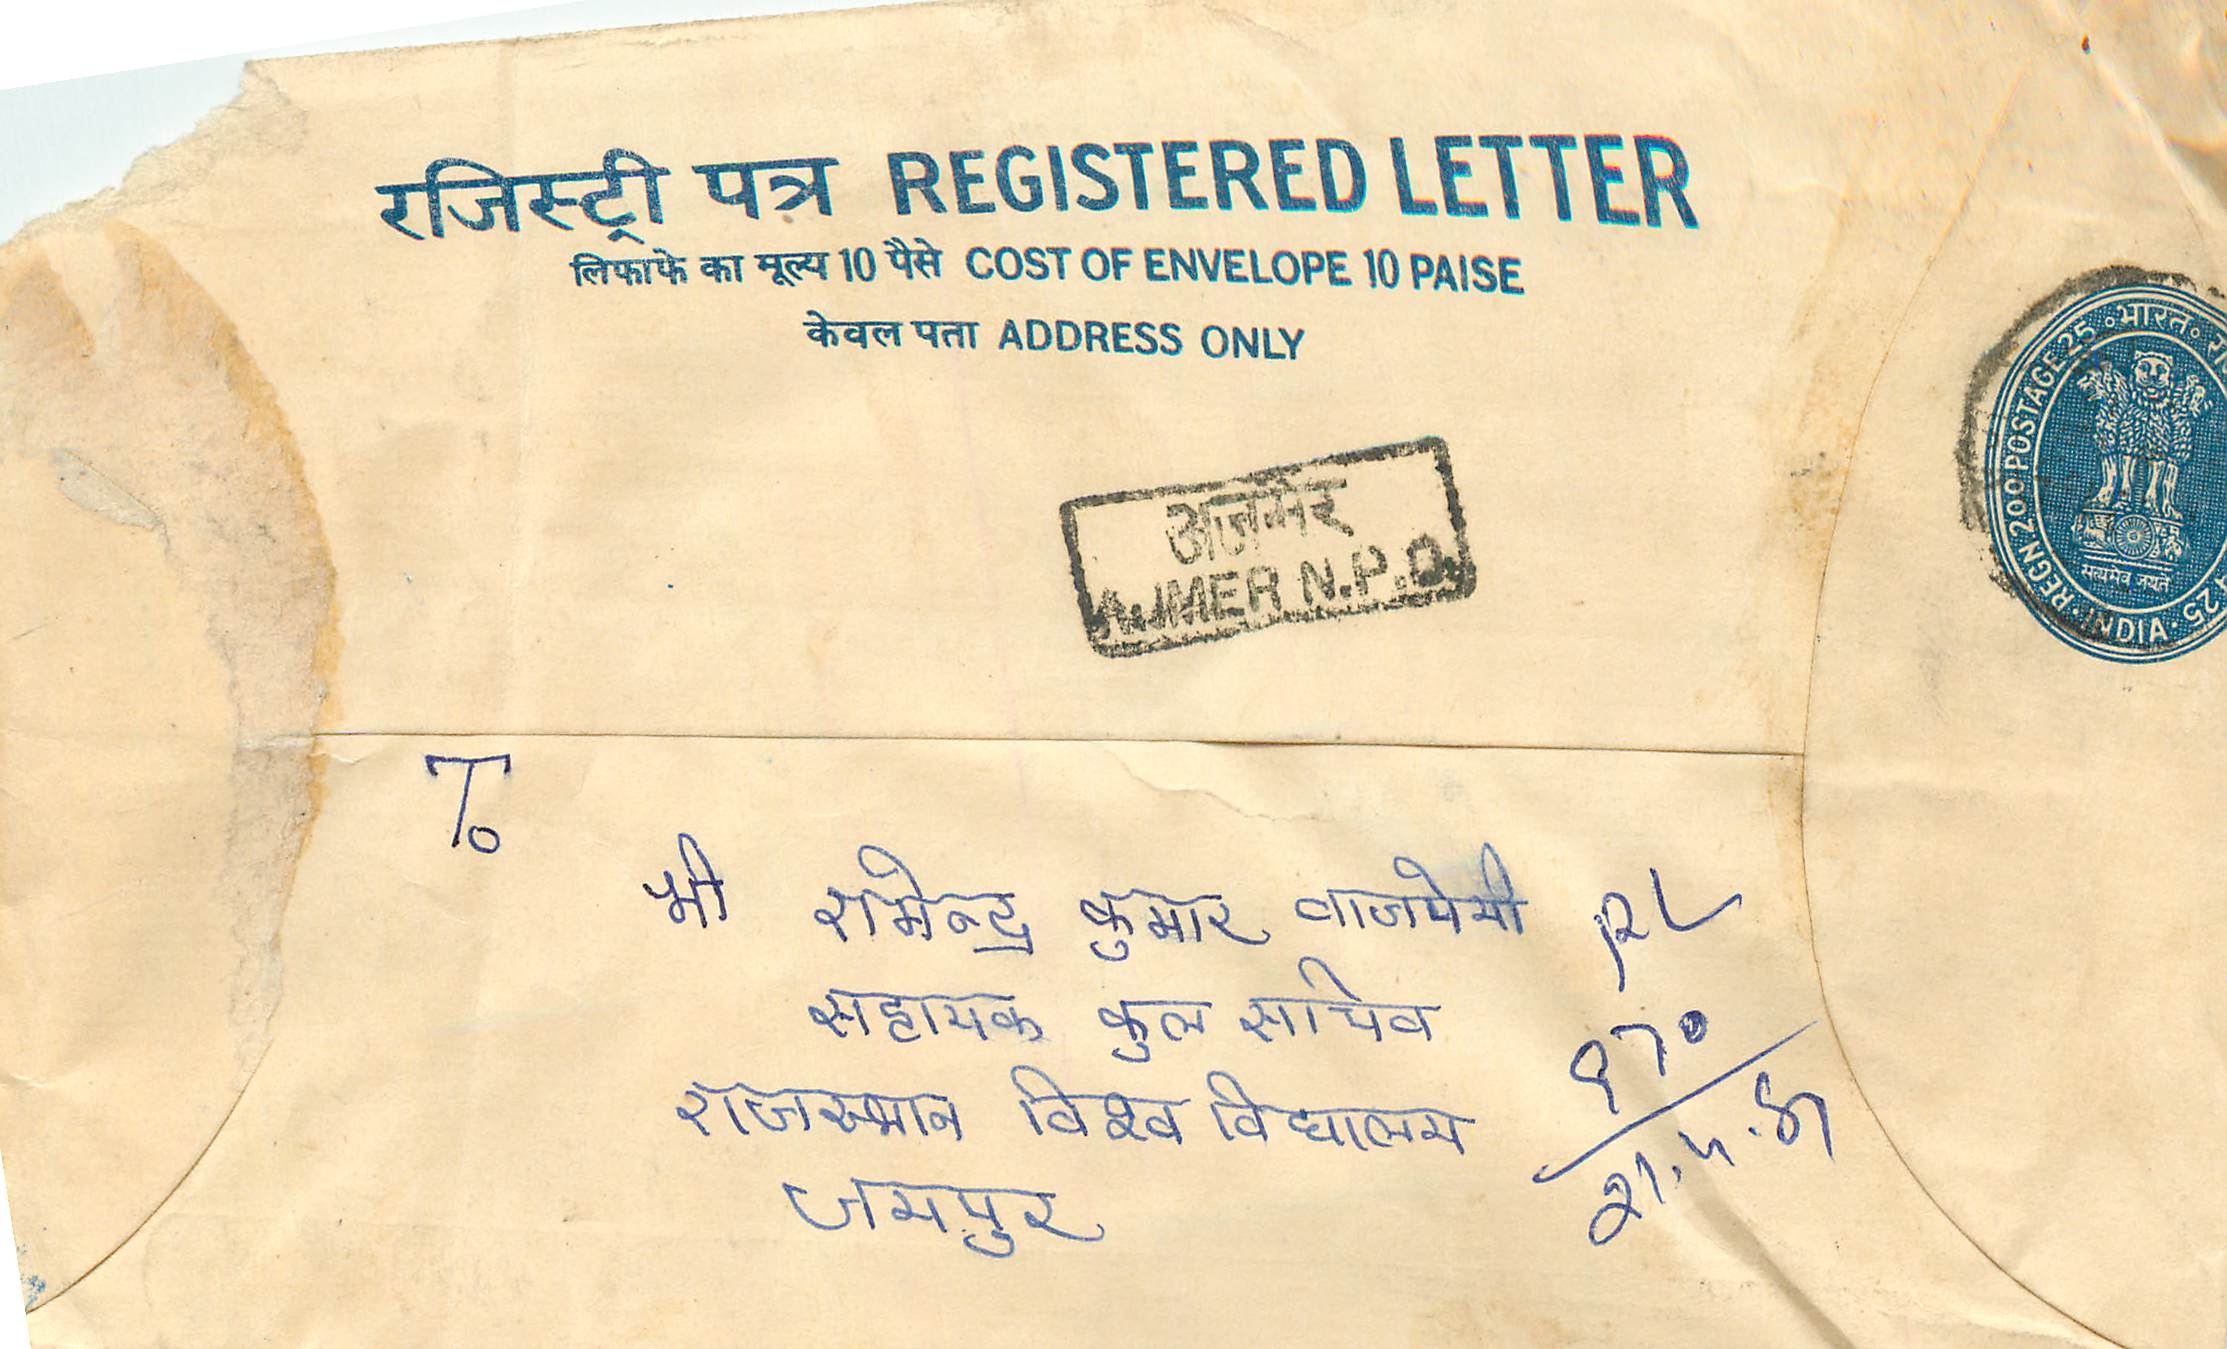 रजिस्ट्री पत्र REGISTERED LETTER
लिफाफे का मूल्य 10 पैसे COST OF ENVELOPE 10 PAISE
केवल पता ADDRESS ONLY
भारत INDIA REGN 200 POSTAGE 25
सत्यमेव जयते
अजमेर
AJMER N.P.O.
To
श्री रामेन्द्र कुमार वाजपेयी
सहायक कुल सचिव
राजस्थान विश्व विद्यालय
जयपुर